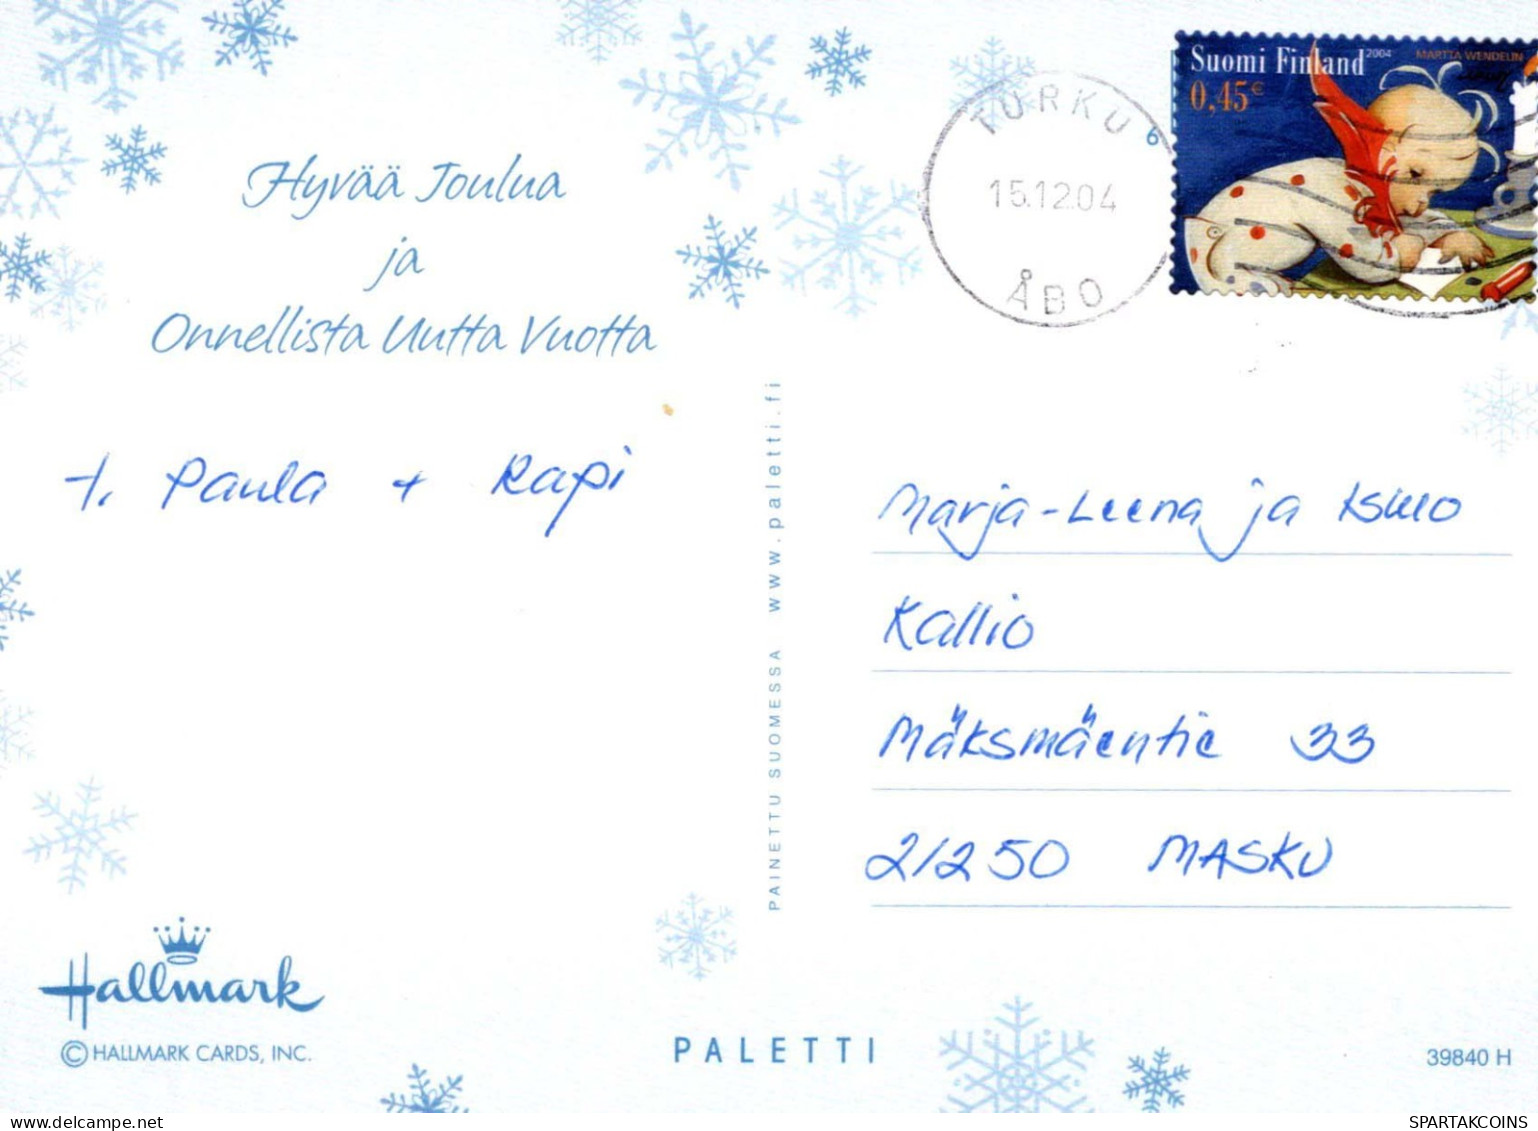 Hyvää Joulua
ja
Onnellista Uutta Vuotta
t. Paula + Rapi
Hallmark
© HALLMARK CARDS, INC.
PAINETTU SUOMESSA www.paletti.fi
PALETTI
Suomi Finland 2004 MARTTA WENDELIN
0,45€
TURKU 6
15.12.04
ÅBO
Marja-Leena ja Ismo
Kallio
Mäksmäentie 33
21250 MASKU
39840 H
delcampe.net
SPARTAKCOINS